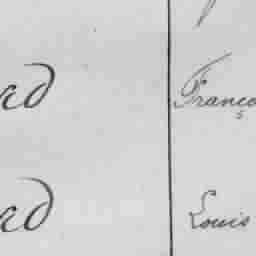 rd Franço
rd Louis